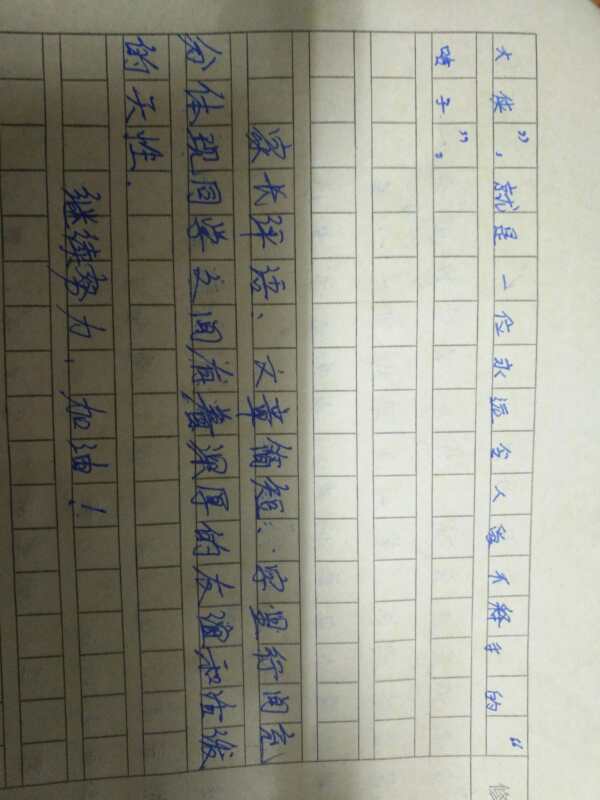 大侠”，就是一位永远令人爱不释手的“
子”。
家长评语：文章简短，字里行间充
分体现同学之间有着深厚的友谊和活泼
的天性.
继续努力，加油！